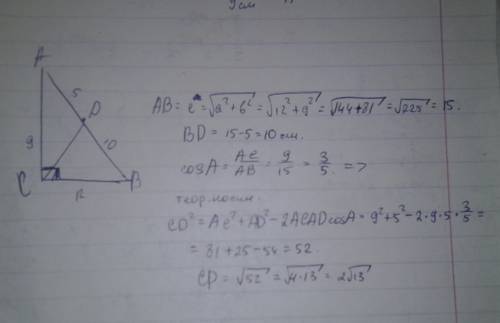 9 см
A
5
D
9
10
C
B
12
AB = c = √a²+b² = √12²+9² = √144+81 = √225 = 15.
BD = 15-5=10 см.
cosA = AC/AB = 9/15 = 3/5. =>
теор. косин.
CD² = AC²+AD²-2ACADcosA = 9²+5²-2·9·5·3/5 =
= 81+25-54 = 52.
CD = √52 = √4·13 = 2√13